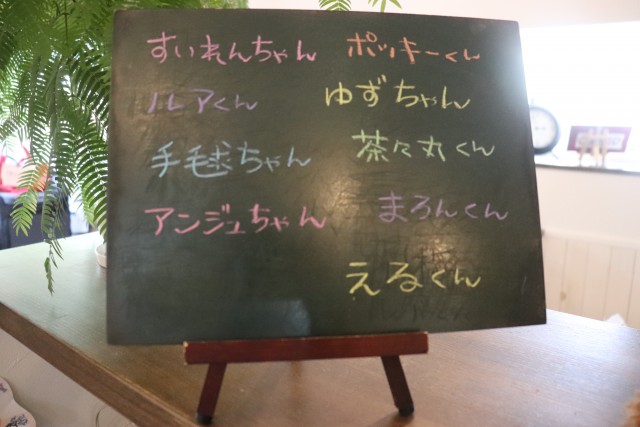 すいれんちゃん ポッキーくん
ルアくん ゆずちゃん
手毬ちゃん 茶々丸くん
アンジュちゃん まろんくん
えるくん